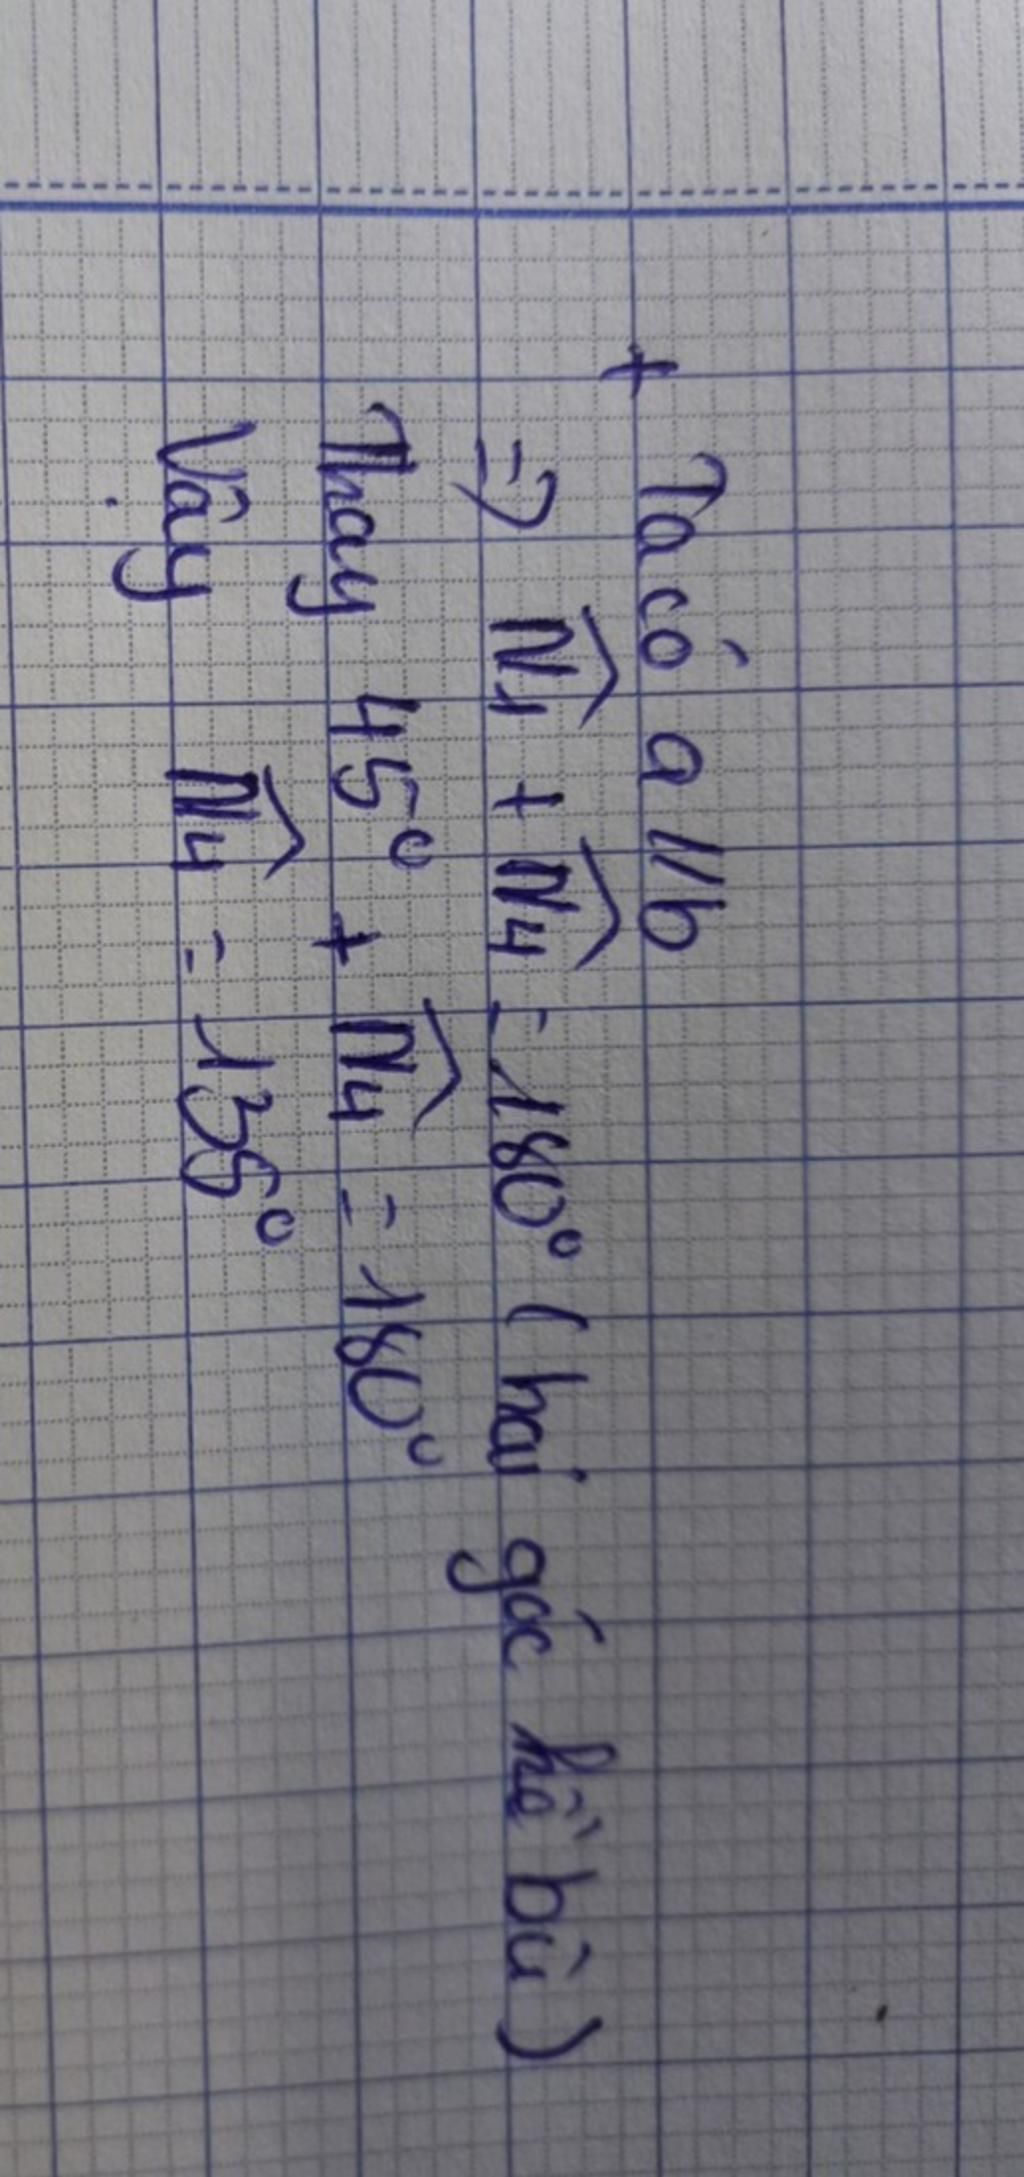 + Ta có a // b
=> N̂1 + N̂4 = 180° ( hai góc kề bù )
Thay 45° + N̂4 = 180°
Vậy N̂4 = 135°